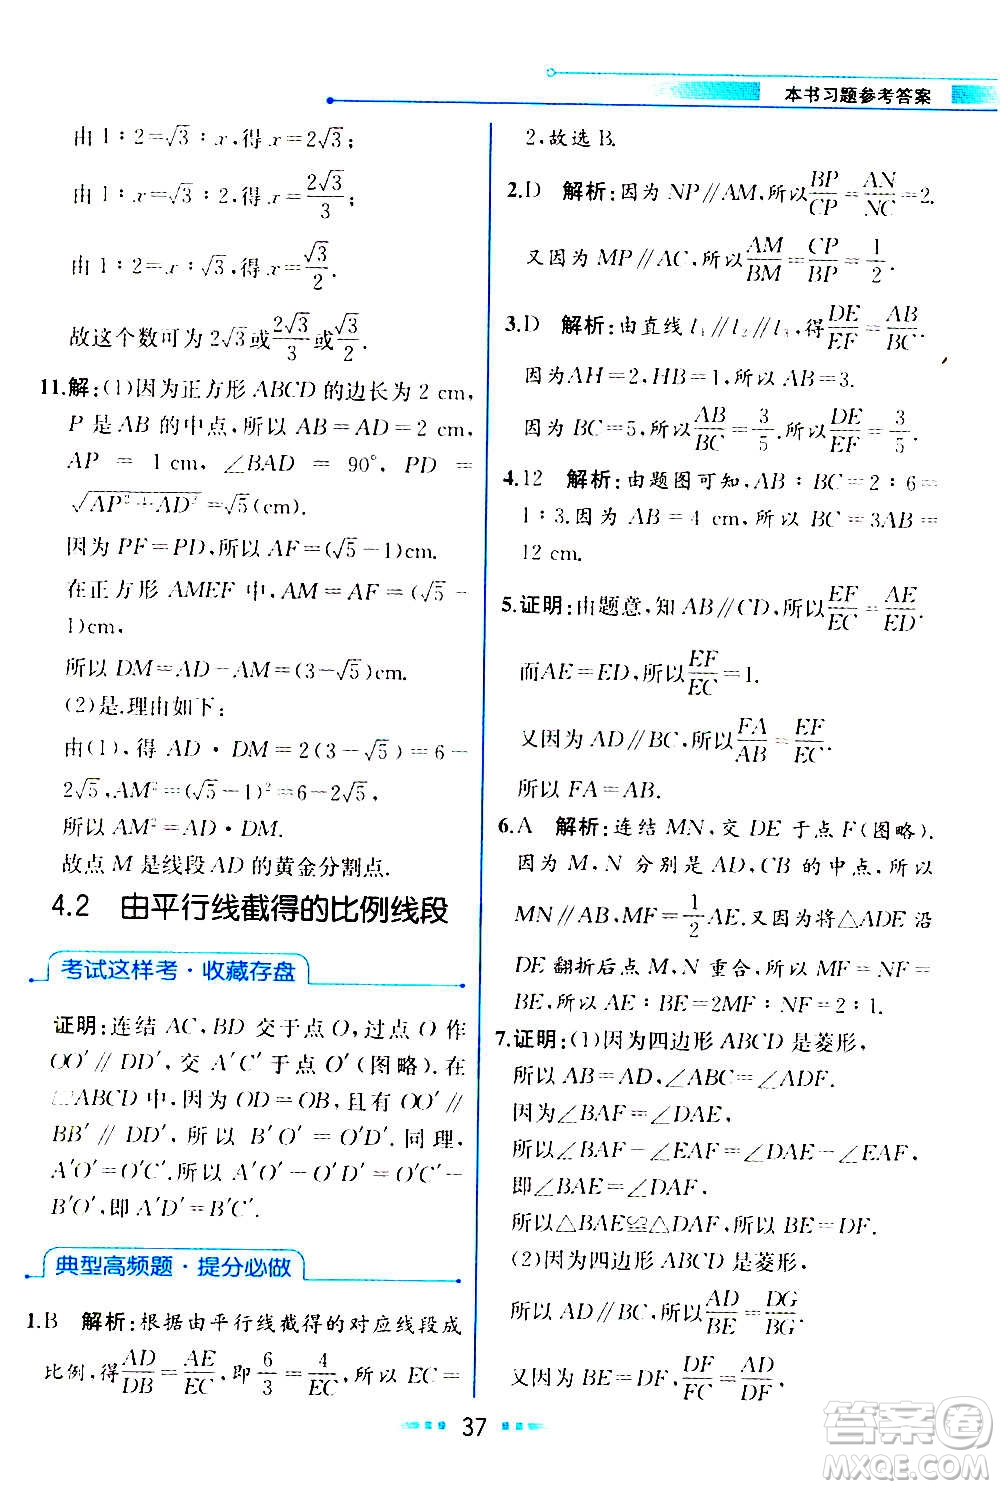 本书习题参考答案
由1∶2=√3∶x,得x=2√3;
由1∶x=√3∶2,得x=2√3/3;
由1∶2=x∶√3,得x=√3/2.
故这个数可为2√3或2√3/3或√3/2.
11.解:(1)因为正方形ABCD的边长为2 cm,
P是AB的中点,所以AB=AD=2 cm,
AP=1 cm,∠BAD=90°,PD=
√(AP²+AD²)=√5(cm).
因为PF=PD,所以AF=(√5-1)cm.
在正方形AMEF中,AM=AF=(√5-
1)cm,
所以DM=AD-AM=(3-√5)cm.
(2)是.理由如下:
由(1),得AD·DM=2(3-√5)=6-
2√5,AM²=(√5-1)²=6-2√5,
所以AM²=AD·DM.
故点M是线段AD的黄金分割点.
4.2 由平行线截得的比例线段
考试这样考·收藏存盘
证明:连结AC,BD交于点O,过点O作
OO′∥DD′,交A′C′于点O′(图略).在
▱ABCD中,因为OD=OB,且有OO′∥
BB′∥DD′,所以B′O′=O′D′.同理,
A′O′=O′C′.所以A′O′-O′D′=O′C′-
B′O′,即A′D′=B′C′.
典型高频题·提分必做
1.B 解析:根据由平行线截得的对应线段成
比例,得AD/DB=AE/EC,即6/3=4/EC,所以EC=
2,故选B.
2.D 解析:因为NP∥AM,所以BP/CP=AN/NC=2.
又因为MP∥AC,所以AM/BM=CP/BP=1/2.
3.D 解析:由直线l₁∥l₂∥l₃,得DE/EF=AB/BC.
因为AH=2,HB=1,所以AB=3.
因为BC=5,所以AB/BC=3/5.所以DE/EF=3/5.
4.12 解析:由题图可知,AB∶BC=2∶6=
1∶3.因为AB=4 cm,所以BC=3AB=
12 cm.
5.证明:由题意,知AB∥CD,所以EF/EC=AE/ED.
而AE=ED,所以EF/EC=1.
又因为AD∥BC,所以FA/AB=EF/EC.
所以FA=AB.
6.A 解析:连结MN,交DE于点F(图略).
因为M,N分别是AD,CB的中点,所以
MN∥AB,MF=1/2AE.又因为将△ADE沿
DE翻折后点M,N重合,所以MF=NF=
BE,所以AE∶BE=2MF∶NF=2∶1.
7.证明:(1)因为四边形ABCD是菱形,
所以AB=AD,∠ABE=∠ADF.
因为∠BAF=∠DAE,
所以∠BAF-∠EAF=∠DAE-∠EAF,
即∠BAE=∠DAF.
所以△BAE≌△DAF,所以BE=DF.
(2)因为四边形ABCD是菱形,
所以AD∥BC,所以AD/BE=DG/BG.
又因为BE=DF,DF/FC=AD/DF,
37
答案圈
MXQE.COM